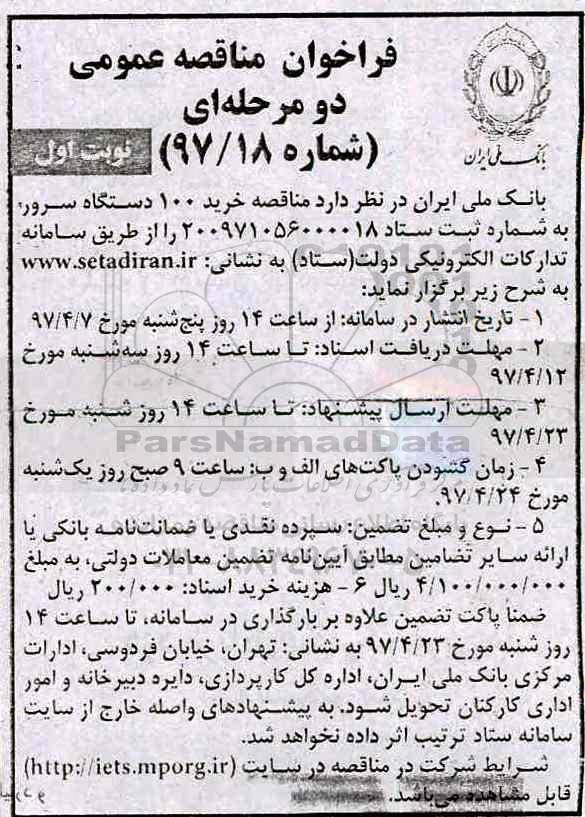 فراخوان مناقصه عمومی
دو مرحله‌ای
(شماره ۹۷/۱۸)
نوبت اول
بانک ملی ایران
بانک ملی ایران در نظر دارد مناقصه خرید ۱۰۰ دستگاه سرور،
به شماره ثبت ستاد ۲۰۰۹۷۱۰۵۶۰۰۰۰۱۸ را از طریق سامانه
تدارکات الکترونیکی دولت(ستاد) به نشانی: www.setadiran.ir
به شرح زیر برگزار نماید:
۱- تاریخ انتشار در سامانه: از ساعت ۱۴ روز پنج‌شنبه مورخ ۹۷/۴/۷
۲- مهلت دریافت اسناد: تا ساعت ۱۴ روز سه‌شنبه مورخ
۹۷/۴/۱۲
۳- مهلت ارسال پیشنهاد: تا ساعت ۱۴ روز شنبه مورخ
۹۷/۴/۲۳
ParsNamadData
۴- زمان گشودن پاکت‌های الف و ب: ساعت ۹ صبح روز یک‌شنبه
مورخ ۹۷/۴/۲۴
۵- نوع و مبلغ تضمین: سپرده نقدی یا ضمانت‌نامه بانکی یا
ارائه سایر تضامین مطابق آیین‌نامه تضمین معاملات دولتی، به مبلغ
۴/۱۰۰/۰۰۰/۰۰۰ ریال ۶- هزینه خرید اسناد: ۲۰۰/۰۰۰ ریال
ضمناً پاکت تضمین علاوه بر بارگذاری در سامانه، تا ساعت ۱۴
روز شنبه مورخ ۹۷/۴/۲۳ به نشانی: تهران، خیابان فردوسی، ادارات
مرکزی بانک ملی ایران، اداره کل کارپردازی، دایره دبیرخانه و امور
اداری کارکنان تحویل شود. به پیشنهادهای واصله خارج از سایت
سامانه ستاد ترتیب اثر داده نخواهد شد.
شرایط شرکت در مناقصه در سایت (http://iets.mporg.ir)
قابل مشاهده می‌باشد.